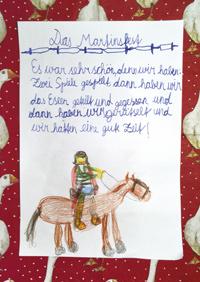 Das Martinsfest
Es war sehr schön, denn wir haben
Zwei Spiele gespielt, dann haben wir
das Essen geteilt und gegessen und
dann haben wir gerätselt und
wir hatten eine gute Zeit!